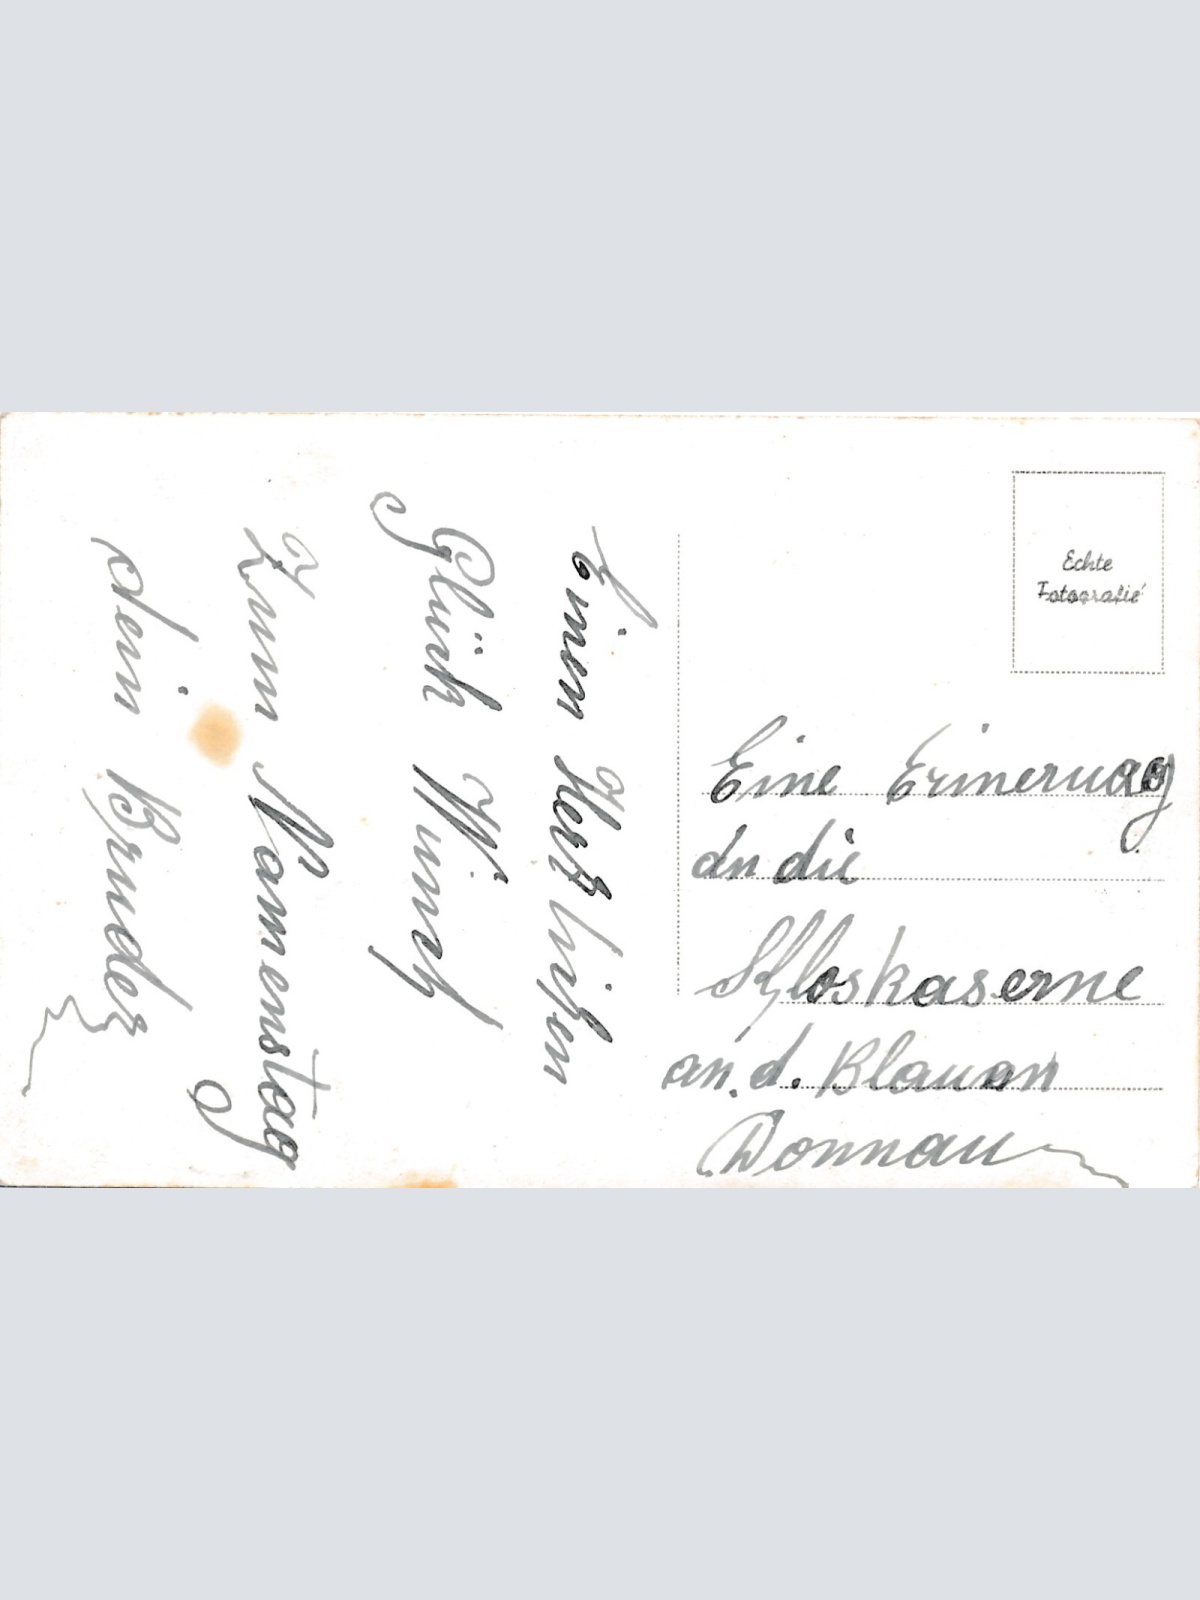 Einen Herzlichen
Glück Wunsch
Zum Namenstag
dein Bruder
Echte
Fotografie
Eine Erinerung
an die
Schloskaserne
an. d. Blauan
Donnau